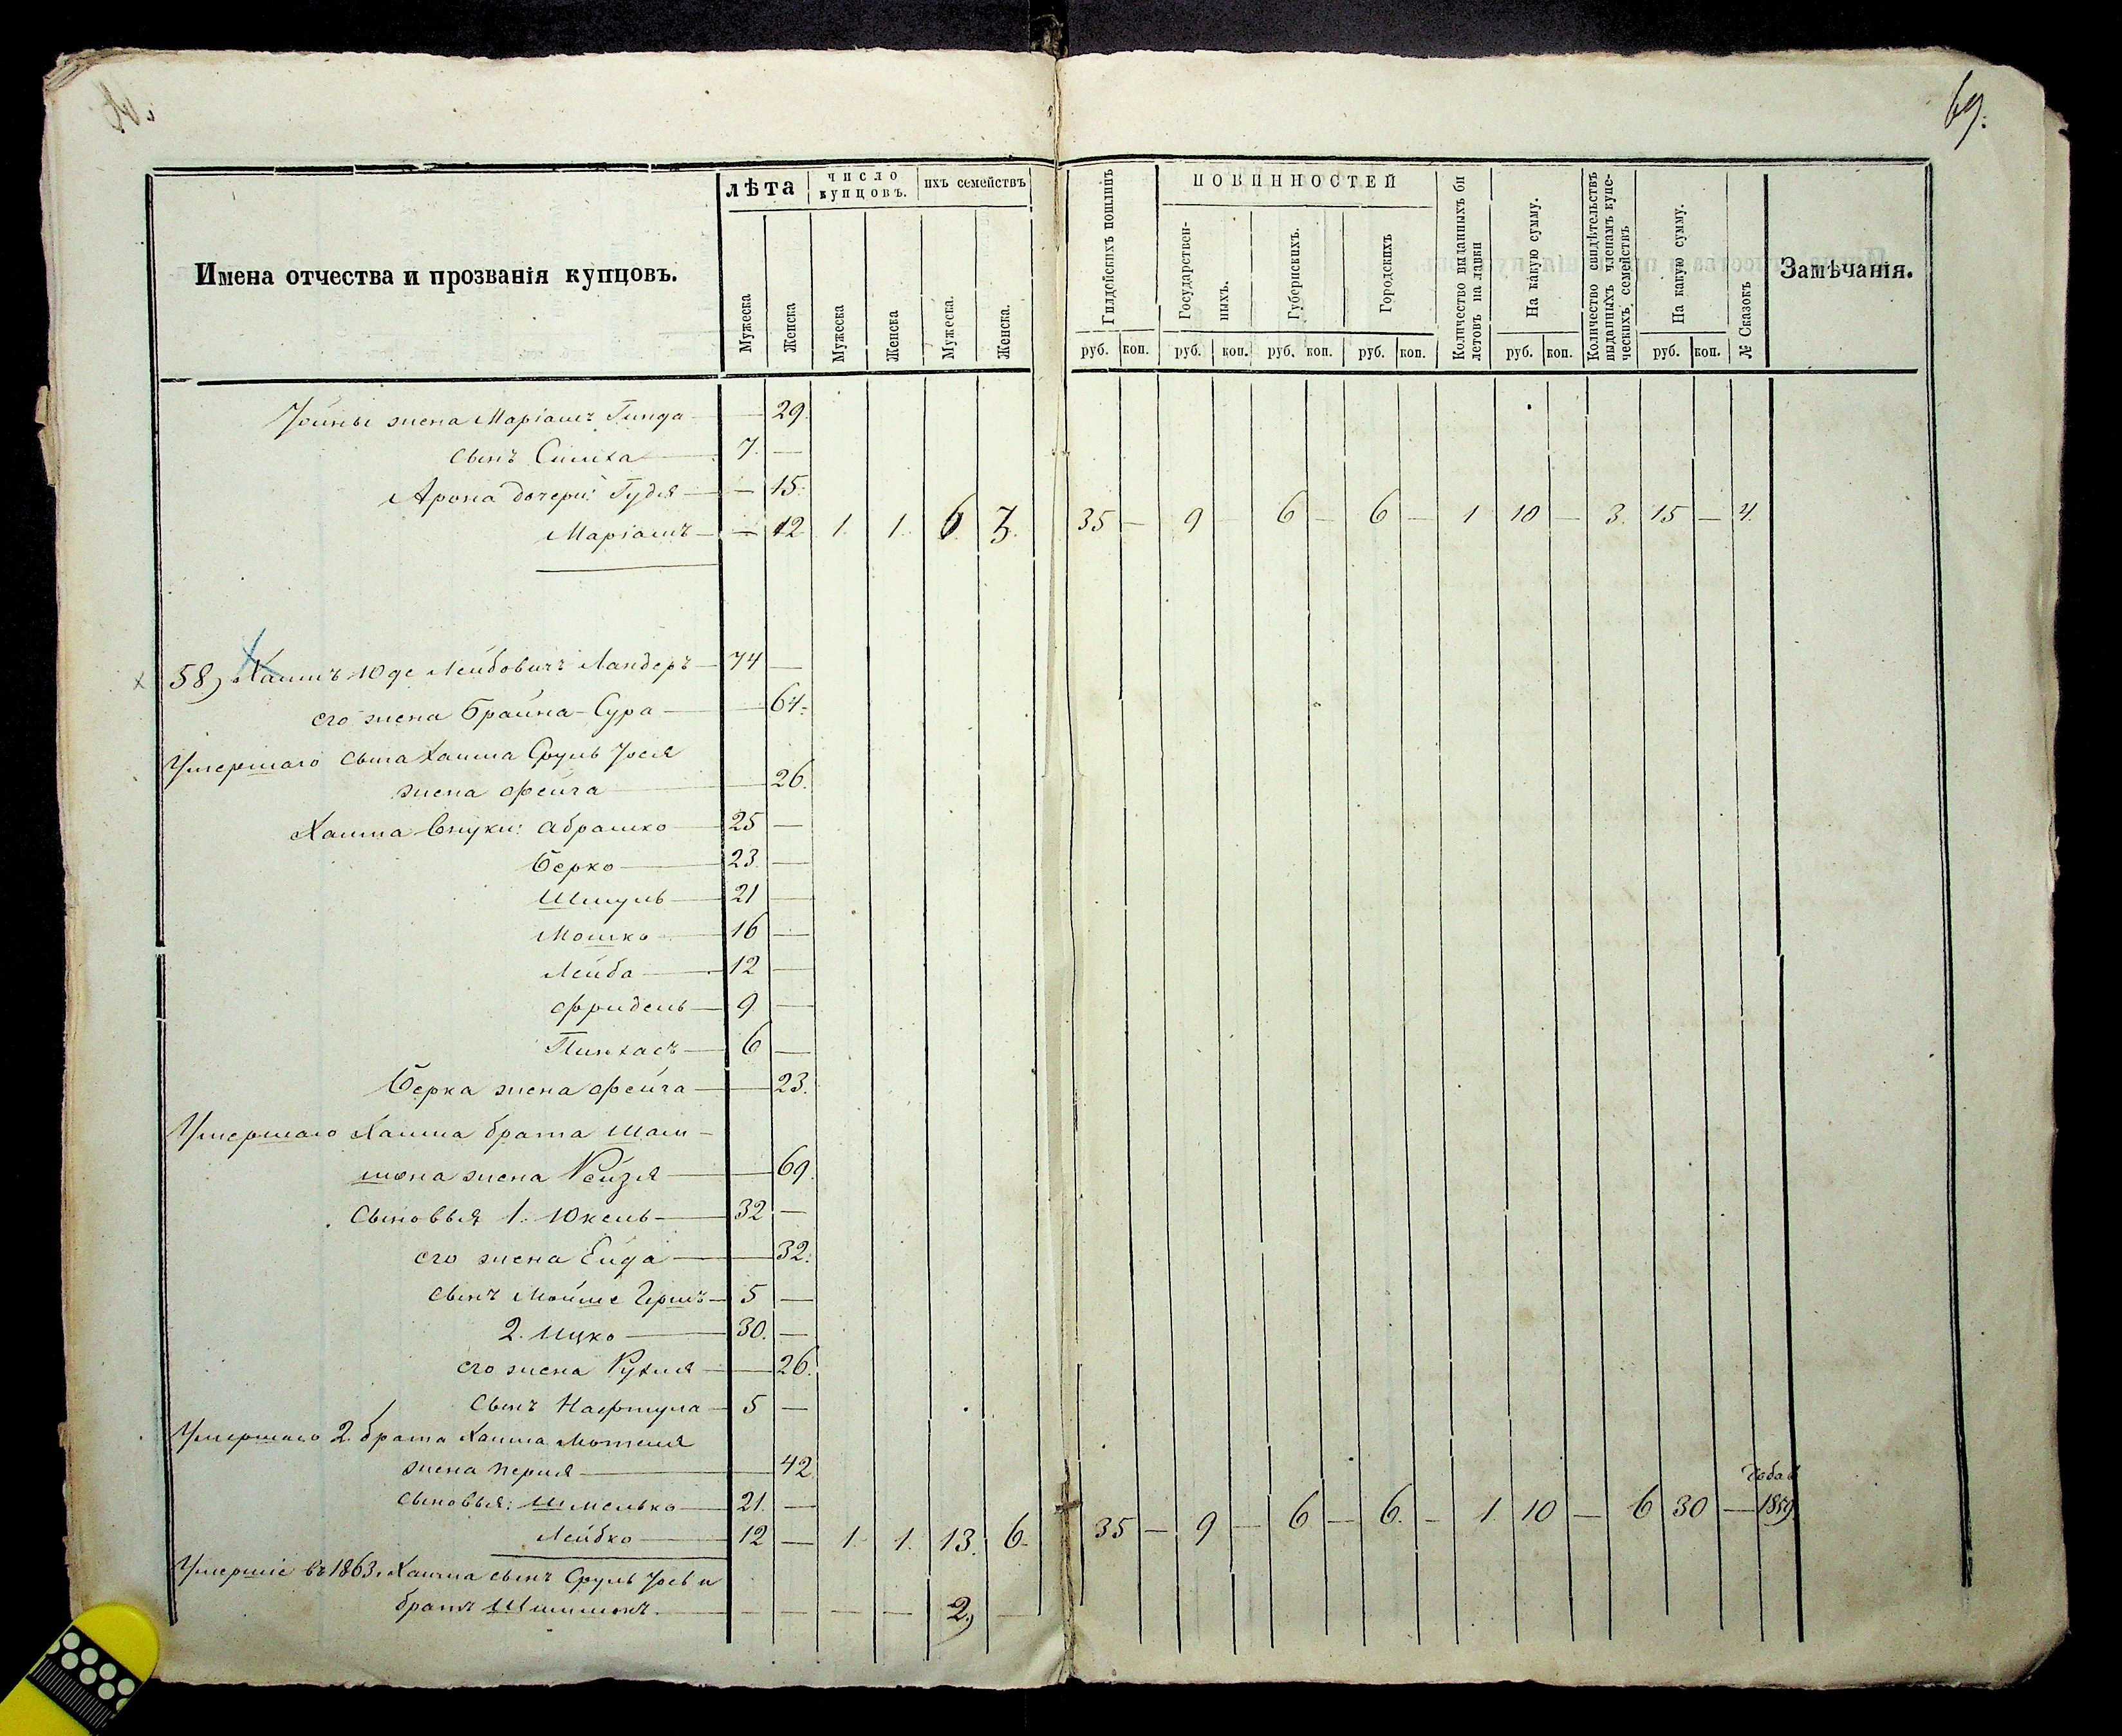 69.
Имена отчества и прозванія купцовъ.
лѣта
число купцовъ.
ихъ семействъ
Мужеска
Женска
Мужеска
Женска
Мужеска.
Женска.
Гилдейскихъ пошлинъ
ПОВИННОСТЕЙ
Государственныхъ.
Губернскихъ.
Городскихъ
Количество выданныхъ билетовъ на лавки
На какую сумму.
Количество свидѣтельствъ выданныхъ членамъ купеческихъ семействъ
На какую сумму.
№ Сказокъ
Замѣчанія.
руб. коп. руб. коп. руб. коп. руб. коп. руб. коп. руб. коп.
жена Маріамъ Гинда — 29.
сынъ Симха 7. —
Арона дочери: Гудя — 15.
Маріамъ — 12 1. 1. 6 7. 35 — 9 — 6 — 6 — 1 10 — 3. 15 — 4.
58) Хаимъ Юде Лейбовичъ Ландеръ 74 —
его жена Брайна-Сура — 64.
Умершаго сына Хаима Сруль Іося
жена Фейга — 26.
Хаима внуки: Абрамко 25 —
Берко 23 —
Шмуль 21 —
Мошко 16 —
Лейба 12 —
Фридель 9 —
Пинхасъ 6 —
Берка жена Фейга — 23.
Умершаго Хаима брата Шам-
шона жена Рейзя — 69.
Сыновья 1. Юкель 32 —
его жена Ейда — 32.
сынъ Мойше Гершъ 5 —
2. Ицко 30. —
его жена Рухля — 26.
сынъ Нафтула 5 —
Умершаго 2 брата Хаима Мотеля
жена Перля — 42.
сыновья: Шмелько 21. —
Лейбко 12 — 1. 1. 13. 6. 35 — 9 — 6 — 6. — 1 10 — 6 30 — 1859.
Умершіе въ 1863 г. Хаима сынъ Сруль Іось и
братъ Шимшонъ. — — — — 2, —